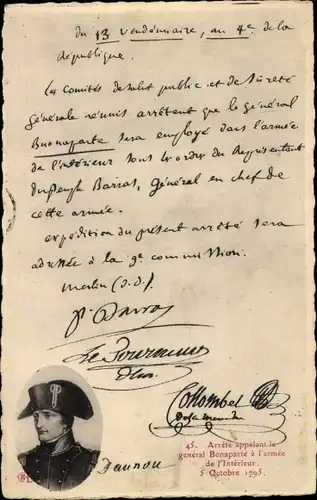 du 13 vendémiaire, an 4e de la
République.
Les Comités de salut public et de sûreté
générale réunis arrêtent que le général
Buonaparte sera employé dans l'armée
de l'intérieur sous les ordres du Représentant
du peuple Barras, Général en chef de
cette armée.
expédition du présent arrêté sera
adressée à la 9e commission.
Merlin (d.D).
P. Barras
Le Tourneur
Collombel
Daunou
45. Arrêté appelant le
général Bonaparte à l'armée
de l'Intérieur.
5 Octobre 1795.